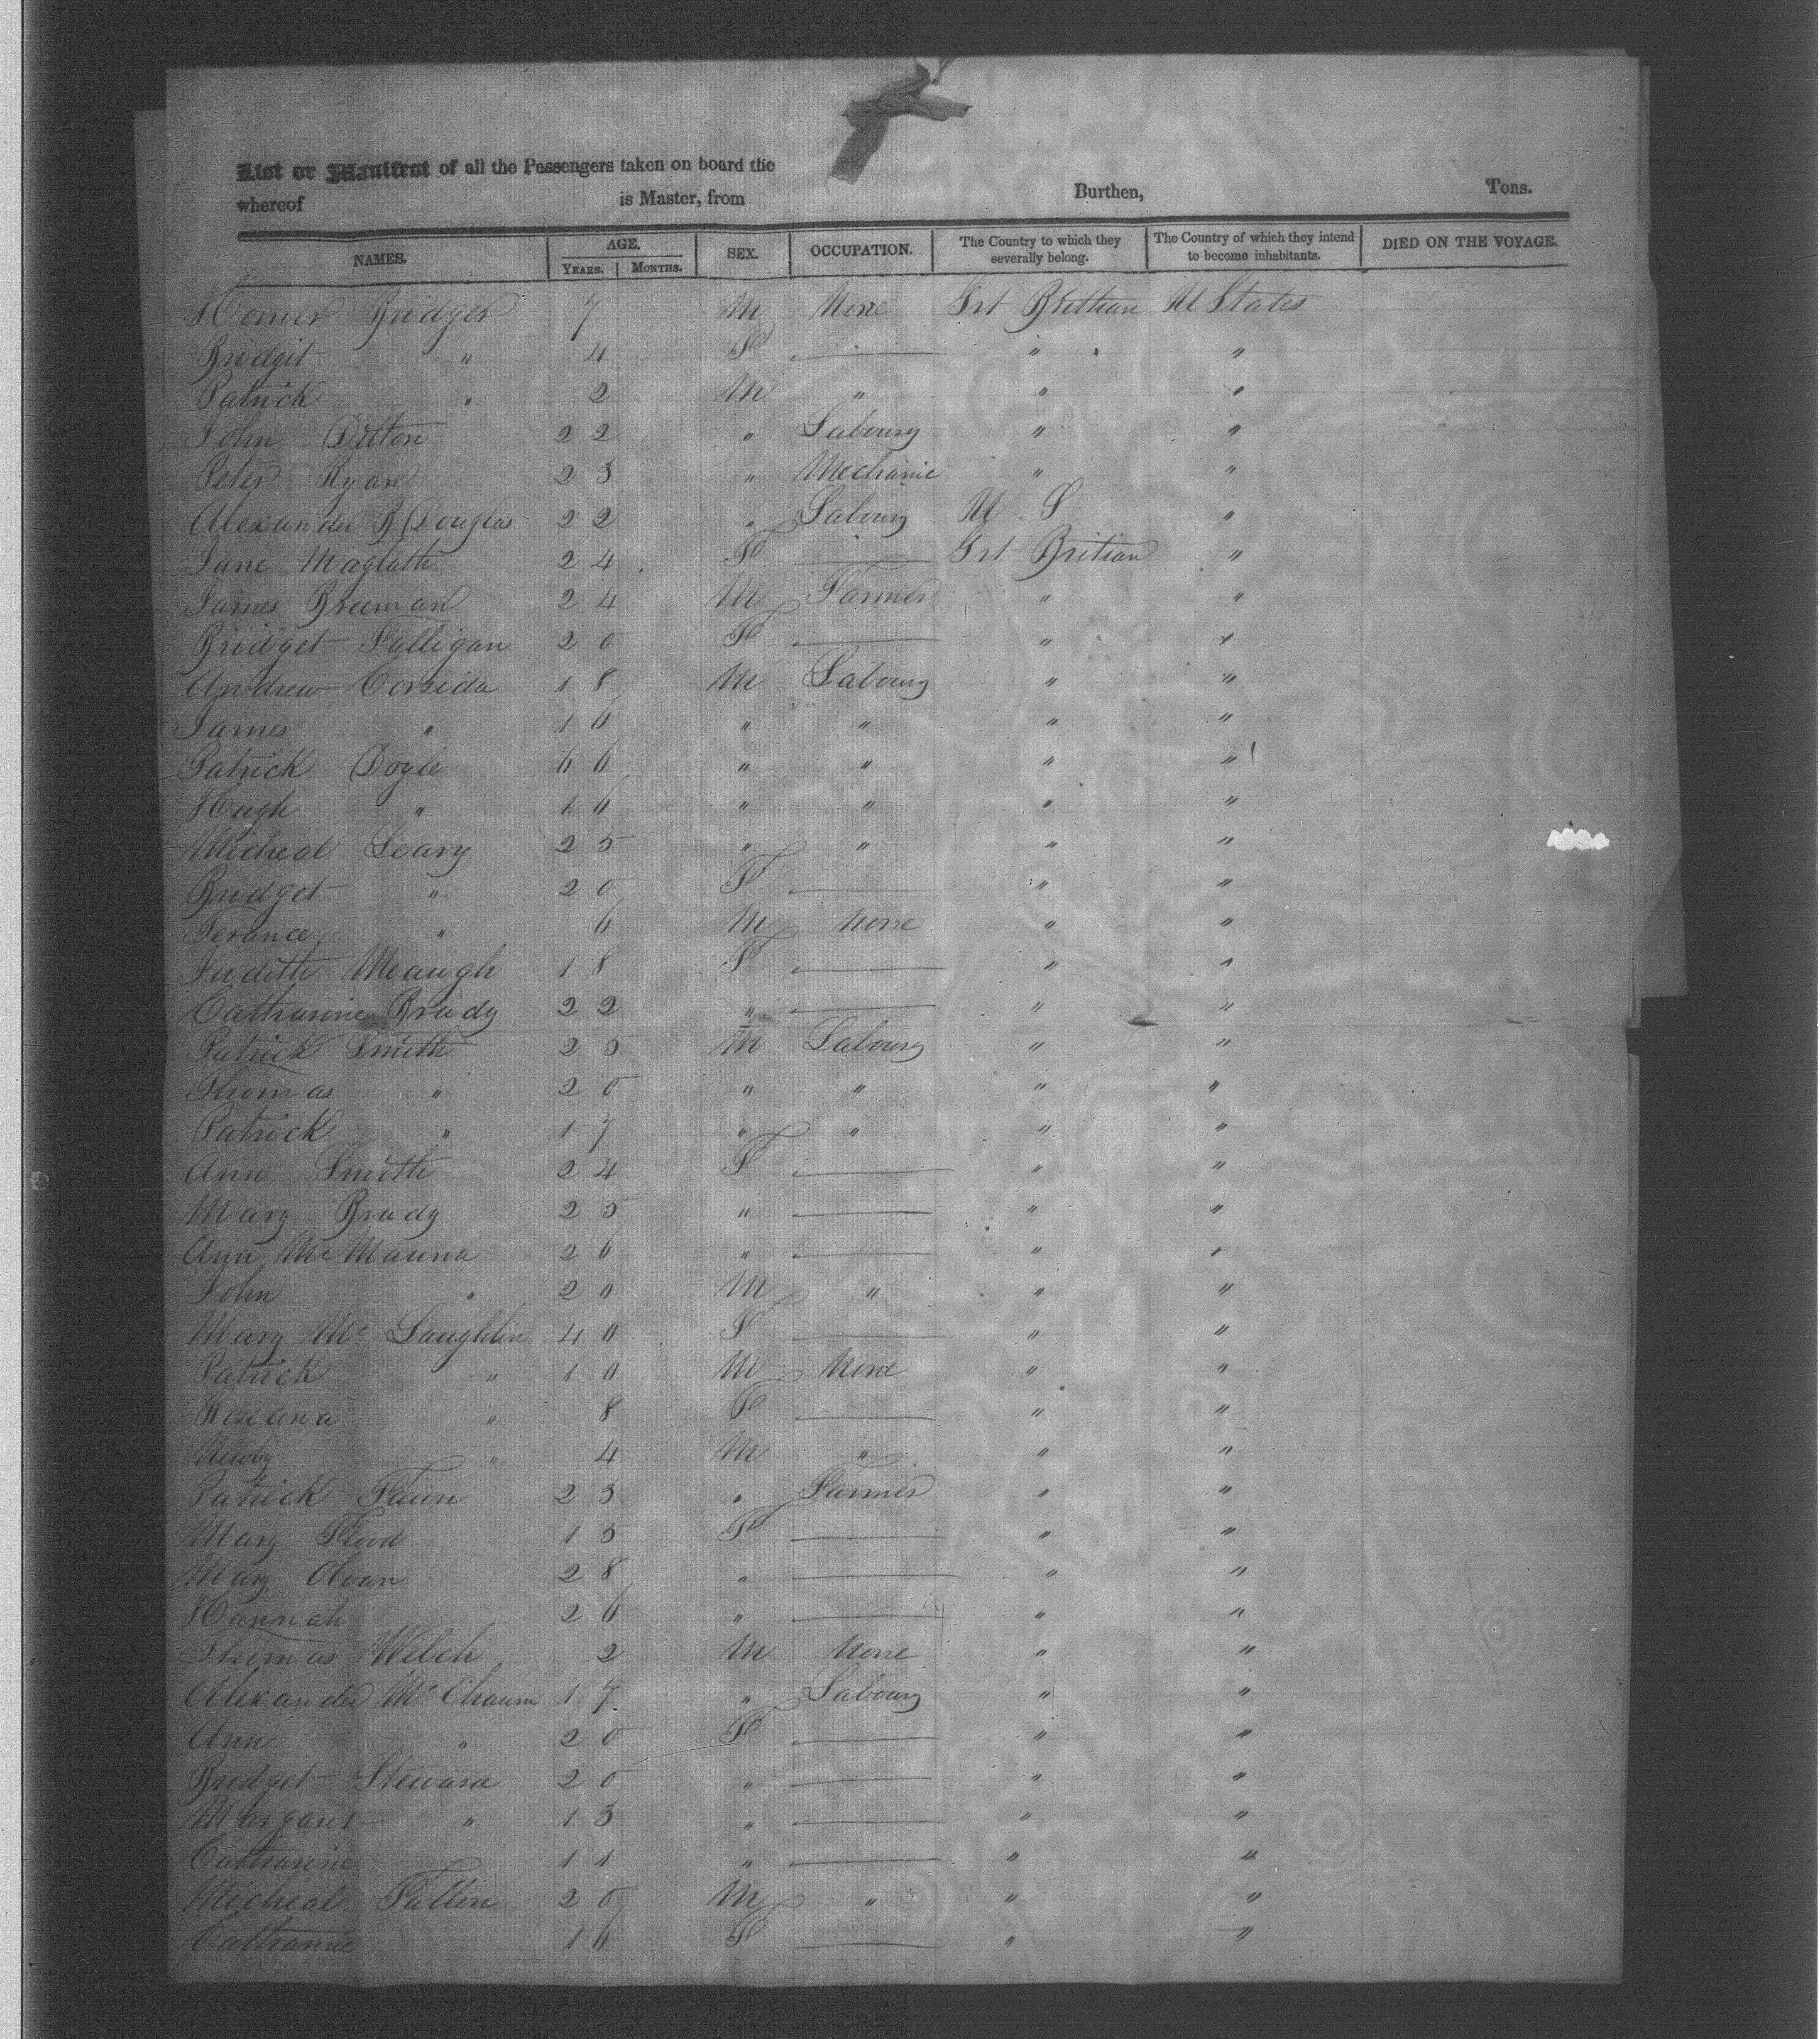 List or Manifest of all the Passengers taken on board the
whereof is Master, from Burthen, Tons.
NAMES. AGE. YEARS. MONTHS. SEX. OCCUPATION. The Country to which they severally belong. The Country of which they intend to become inhabitants. DIED ON THE VOYAGE.
Homer Bridger 7 M None Grt Brithan U States
Bridgit " 4 F — " "
Patrick " 2 M " " "
John Ditton 22 " Labourg " "
Peter Ryan 23 " Mechanic " "
Alexander B Douglas 22 " Labourg U S "
Jane Maglath 24 F — Grt Britian "
James Breeman 24 M Farmer " "
Bridget Falligan 20 F — " "
Andrew Corsida 18 M Labourg " "
James " 16 " " " "
Patrick Doyle 66 " " " "
Hugh " 16 " " " "
Micheal Leary 25 " " " "
Bridget " 20 F — " "
Terance " 6 M None " "
Judith Meaugh 18 F — " "
Catharine Brady 22 " — " "
Patrick Smith 25 M Labourg " "
Thomas " 20 " " " "
Patrick " 17 " " " "
Ann Smith 24 F — " "
Mary Brady 25 " — " "
Ann McManna 26 " — " "
John " 20 M " " "
Mary Mc Laughlin 40 F — " "
Patrick " 10 M None " "
Roseana " 8 F — " "
" 4 M " " "
Patrick Fawn 23 " Farmer " "
Mary Flood 15 F — " "
Mary Olvan 28 " — " "
Hannah 26 " — " "
Thomas Welch 2 M None " "
Alexander Mc Chaum 17 " Labourg " "
Ann " 20 F — " "
Bridget Stewara 20 " — " "
Margaret " 13 " — " "
Catharine 11 " — " "
Micheal Fallin 20 M " " "
Catharine 16 F — " "